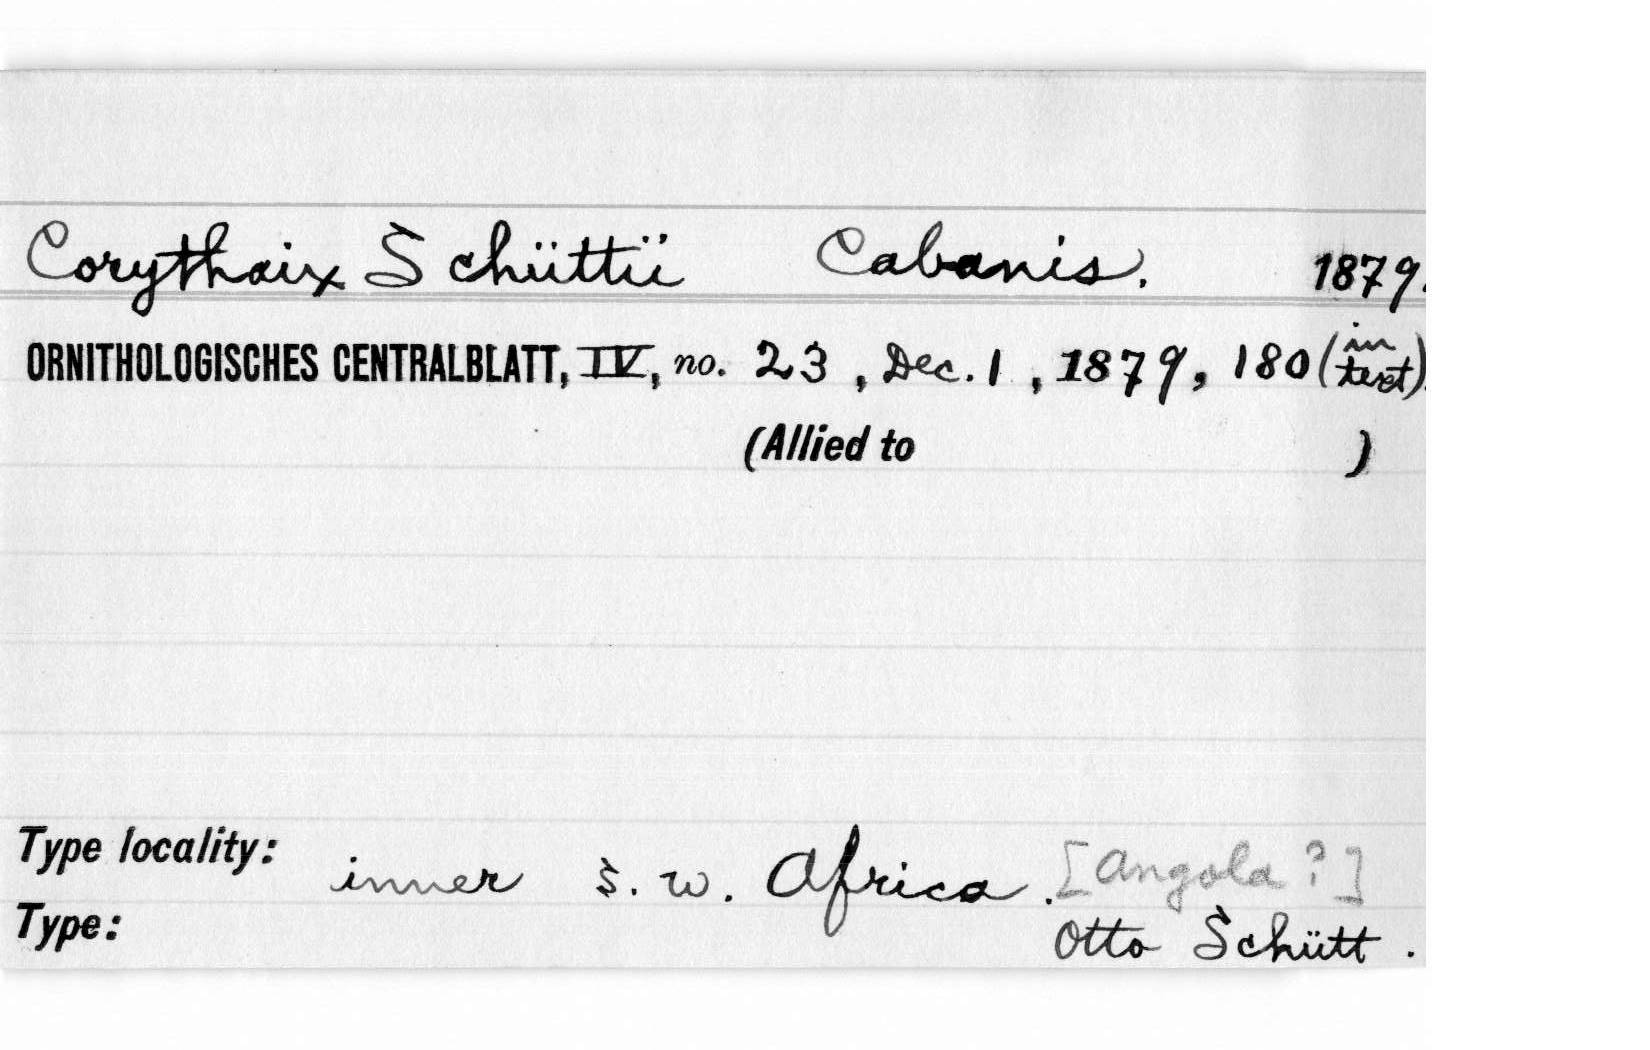 Corythaix Schüttii Cabanis. 1879.
ORNITHOLOGISCHES CENTRALBLATT, IV, no. 23, Dec. 1, 1879, 180 (in text).
(Allied to )
Type locality: inner S. W. Africa. [Angola?]
Type: Otto Schütt.